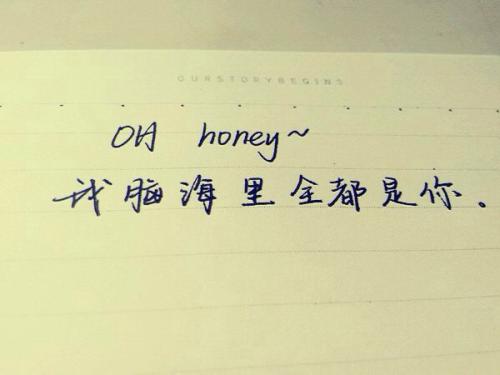 OURSTORYBEGINS
OH honey~
我脑海里全都是你.